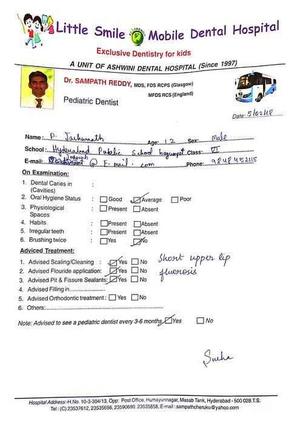 Little Smile Mobile Dental Hospital
Exclusive Dentistry for kids
A UNIT OF ASHWINI DENTAL HOSPITAL (Since 1997)
Dr. SAMPATH REDDY, MDS, FDS RCPS (Glasgow)
MFDS RCS (England)
Pediatric Dentist
Date:
Name: P. Age: 12 Sex: Male
School: Hyderabad Public School begumpet Class: VI
E-mail: @ E-mail.com Phone:
On Examination:
1. Dental Caries in :
(Cavities)
2. Oral Hygiene Status : Good Average Poor
3. Physiological : Present Absent
Spaces
4. Habits : Present Absent
5. Irregular teeth : Present Absent
6. Brushing twice : Yes No
Adviced Treatment:
1. Advised Scaling/Cleaning : Yes No Short upper lip
2. Advised Flouride application: Yes No fluorosis
3. Advised Pit & Fissure Sealants: Yes No
4. Advised Filling in
5. Advised Orthodontic treatment : Yes No
6. Others:
Note: Advised to see a pediatric dentist every 3-6 months Yes No
Sneha
Hospital Address: H.No. 10-3-304/13, Opp. Post Office, Humayunnagar, Masab Tank, Hyderabad - 500 028 T.S.
Tel: (C) 23537612, 23535698, 23590690, 23535858, E-mail: sampathcheruku@yahoo.com